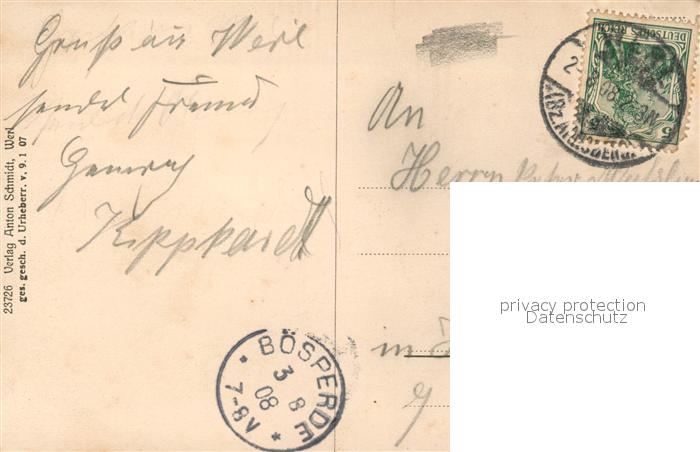 Gruß aus Werl
sendet Freund
Heinrich
Kipphardt
23726 Verlag Anton Schmidt, Werl
ges. gesch. d. Urheberr. v. 9. 1 07
An
Herrn
in
BÖSPERDE
3 8
08
7-8V
DEUTSCHES REICH
5
privacy protection
Datenschutz